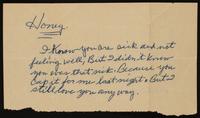 Honey
I Know you are sick and not
feeling well, But I didn't know
you was that sick. Because you
Cop it for me last night. But I
still love you any way.